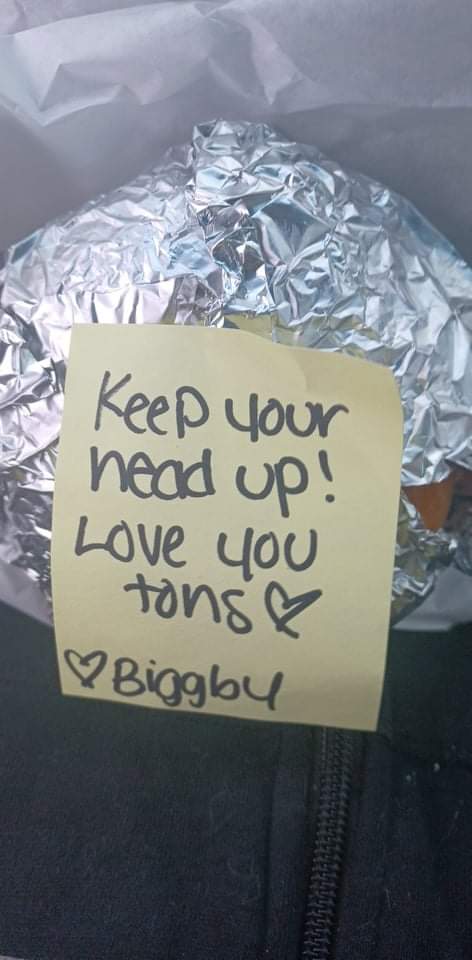 Keep your
head up!
Love you
tons ♡
♡ Biggby